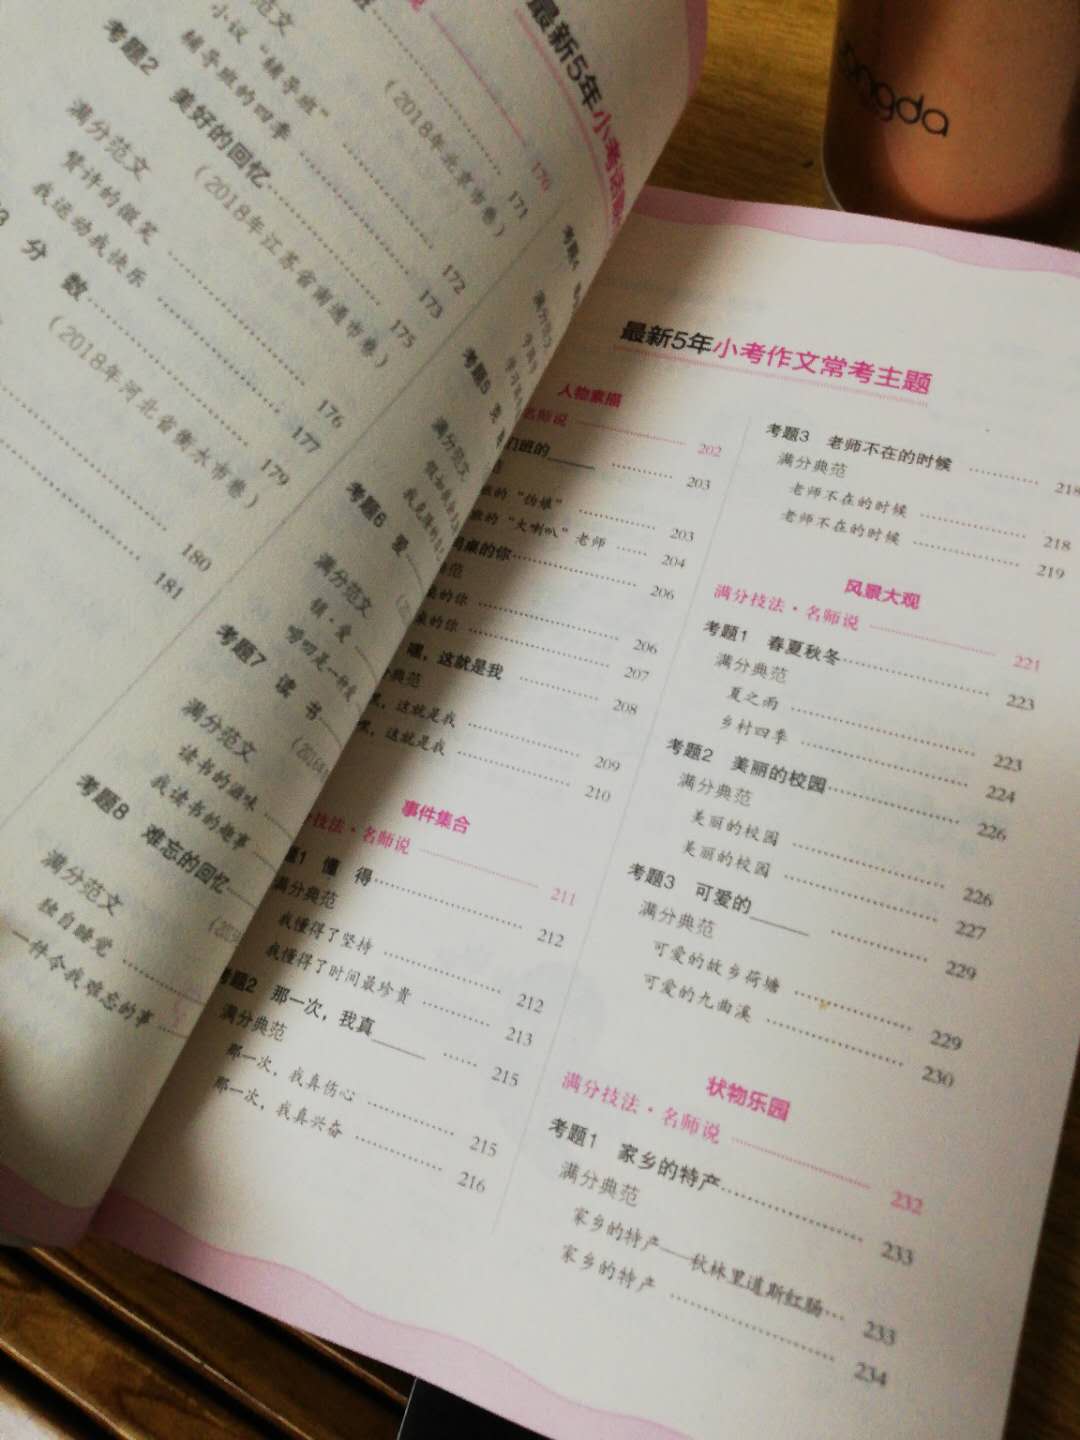 范文
小议“辅导班”
辅导班的四季
170
171
考题2 美好的回忆
(2018年北京市卷)
172
满分范文
赞许的微笑
173
我运动我快乐
175
(2018年江苏省南通市卷)
3 分 数
176
177
(2018年河北省衡水市卷)
179
180
181
最新5年小考
满分范文
考题5
满分范文
考题6 爱
满分范文
考题7 读 书
满分范文
读书的滋味
我读书的趣事
考题8 难忘的回忆
满分范文
独自睡觉
一件令我难忘的事
最新5年小考作文常考主题
人物素描
名师说 202
班的 203
的“伪娘” 203
的“大喇叭”老师 204
桌的你 206
的你 206
的你 207
嘿，这就是我 208
典范
，这就是我 209
嘿，这就是我 210
事件集合
技法·名师说 211
题1 懂 得 212
满分典范
我懂得了坚持 212
我懂得了时间最珍贵 213
考题2 那一次，我真____ 215
满分典范
那一次，我真伤心 215
那一次，我真兴奋 216
考题3 老师不在的时候 218
满分典范
老师不在的时候 218
老师不在的时候 219
风景大观
满分技法·名师说 221
考题1 春夏秋冬 223
满分典范
夏之雨 223
乡村四季 224
考题2 美丽的校园 226
满分典范
美丽的校园 226
美丽的校园 227
考题3 可爱的____ 229
满分典范
可爱的故乡荷塘 229
可爱的九曲溪 230
状物乐园
满分技法·名师说 232
考题1 家乡的特产 233
满分典范
家乡的特产——秋林里道斯红肠 233
家乡的特产 234
ongda